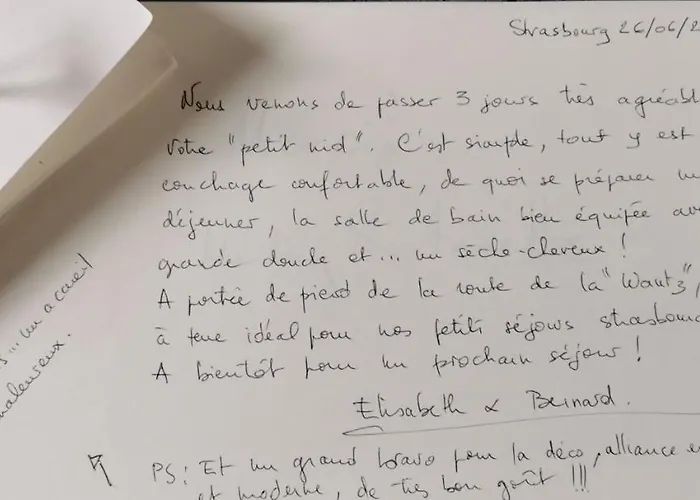 Strasbourg 26/06/2
Nous venons de passer 3 jours très agréabl
votre "petit nid". C'est simple, tout y est
couchage confortable, de quoi se préparer un
déjeuner, la salle de bain bien équipée av
grande douche et... un sèche-cheveux !
A portée de pied de la route de la "Wantz",
à terre idéal pour nos petits séjours strasbour
A bientôt pour un prochain séjour !
Elisabeth & Bernard.
PS: Et un grand bravo pour la déco, alliance
et moderne, de très bon goût !!!
... un accueil
chaleureux.